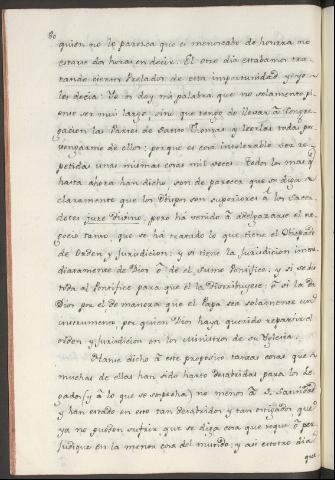 80
quien no le paresca que es menoscabo de honrra no
estarse dos horas en decir. El otro dia estabamos tra-
tando ciertos Prelados de esta importunidad y yo
les decia: Yo os doy mi palabra que no solamente pi-
enso ser mui largo, sino que tengo de llevar a Congre-
gacion las Partes de Santo Thomas y leerlas todas por
vengarme de ellos: porque es cosa intolerable ver re-
petida unas mismas cosas mil veces. Todos los mas
hasta ahora han dicho son de parecer que se diga
claramente que los Obispos son superiores a los Sacer-
dotes jure Divino, pero ha venido a adelgazarse el ne-
gocio tanto, que se ha tratado lo que tiene el Obispado
de Orden y Jurisdicion; y si tiene la Jurisdicion inme-
diatamente de Dios o de el Sumo Pontifice; y si se dio
toda al Pontifice para que el la distribuyese, o si la da
Dios por el; de manera que el Papa sea solamente un
instrumento por quien Dios haya querido repartir el
orden y Jurisdicion en los Ministros de su Yglesia.
Hanse dicho a este proposito tantas cosas que
muchas de ellas han sido harto desabridas para los Le-
gados (y a lo que se sospecha) no menos a S. Santidad
y han estado en esto tan desabridos y tan que
ya no pueden sufrir que se diga cosa que toque o per-
judique en la menor cosa del mundo; y asi estotro dia
que